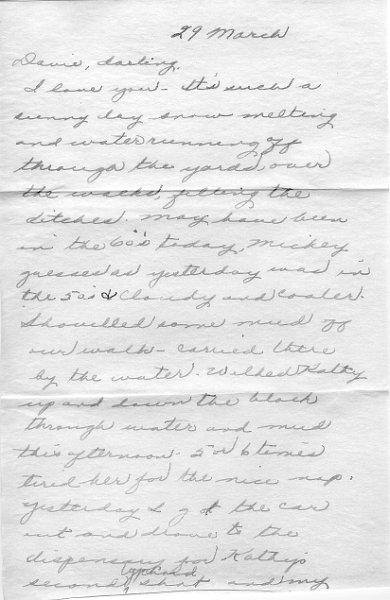 29 March
Davie, darling,
I love you - It's such a
sunny day snow melting
and water running off
through the yards, over
the walks, filling the
ditches. May have been
in the 60's today, Mickey
guesses as yesterday was in
the 50's & Cloudy and cooler.
Shovelled some mud off
our walk - carried there
by the water. Walked Kathy
up and down the block
through water and mud
this afternoon. 5 or 6 times
tired her for the nice nap.
Yesterday I got the car
out and drove to the
dispensary for Kathy's
second typhoid shot and my